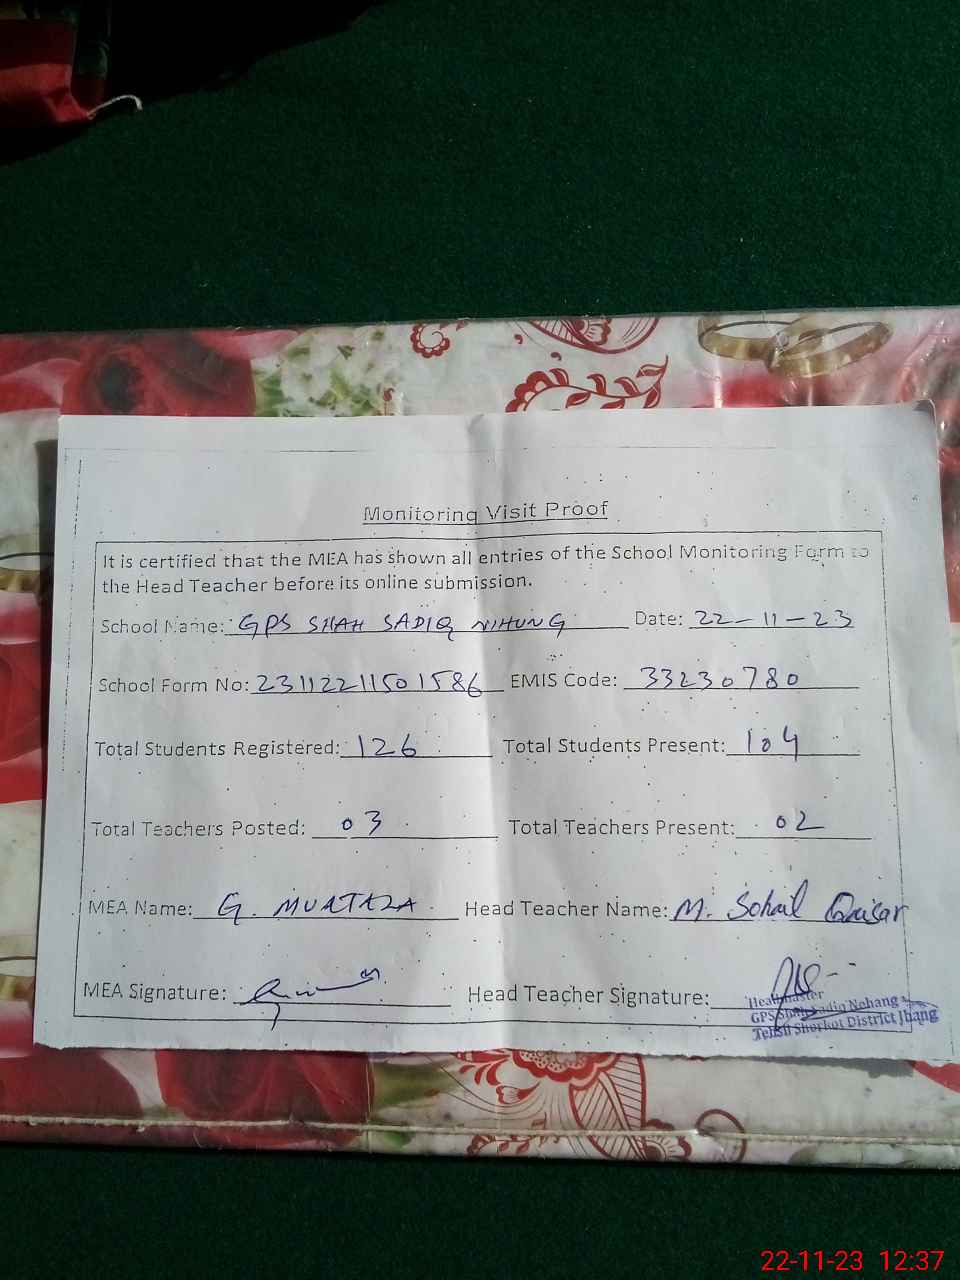 Monitoring Visit Proof
It is certified that the MEA has shown all entries of the School Monitoring Form to
the Head Teacher before its online submission.
School Name: GPS SHAH SADIQ NIHUNG Date: 22-11-23
School Form No: 23112211501586 EMIS Code: 33230780
Total Students Registered: 126 Total Students Present: 104
Total Teachers Posted: 03 Total Teachers Present: 02
MEA Name: G. MURTAZA Head Teacher Name: M. Sohail Qaisar
MEA Signature: Head Teacher Signature:
Headmaster
GPS Shah Sadiq Nehang
Tehsil Shorkot District Jhang
22-11-23 12:37